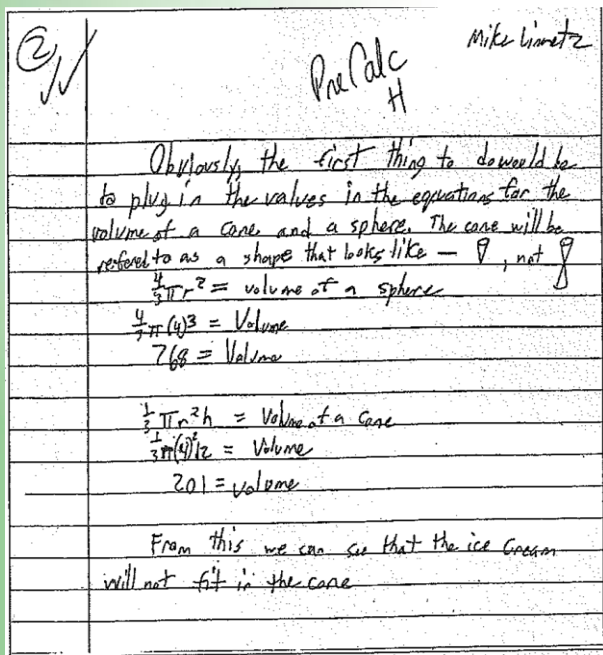 2
Mike Linnetz
PreCalc
H
Obviously, the first thing to do would be
to plug in the values in the equations for the
volume of a cone and a sphere. The cone will be
refered to as a shape that looks like — , not
4/3 π r² = volume of a sphere
4/3 π (4)³ = Volume
268 = Volume
1/3 π r² h = Volume of a cone
1/3 π (4)² 12 = Volume
201 = volume
From this we can see that the ice cream
will not fit in the cone